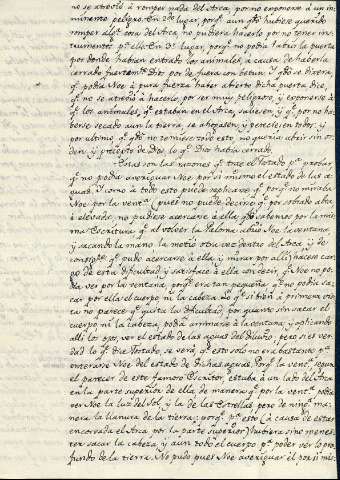 no se atrevió à romper nada del Arca, por no exponerse à un in-
minente peligro. En 2º lugar, porq.e aun q.do hubiese querido
romper alg.a cosa del Arca, no pudiera hacerlo por no tener ins-
trumentos p.a ello. En 3º lugar, porq.e no podia abrir la puerta
por donde habian entrado los animales, à causa de haberla
cerrado fuertem.te Dios por de fuera con betun. Y q.do se dixera,
q.e podia Noe à pura fuerza haber abierto dicha puerta, dice,
q.e no se atrevió à hacerlo, por ser muy peligroso, y exponerse à
q.e los animales, q.e estaban en el Arca, saliesen, y q.e por no ha-
berse secado aun la tierra, se ahogasen y pereciesen todos; y
por ultimo q.e q.do no temiese todo esto, no queria abrir sin or-
den, y precepto de Dios, lo q.e Dios habia cerrado.
Estas son las razones q.e trae el Tostado p.a probar,
q.e no podia averiguar Noe por si mismo el estado de las a-
guas. Y como à todo esto puede replicarse q.e porq.e no miraba
Noe por la vent.a (pues no puede decirse q.e por sobrado alta
ò elevada, no pudiese acercarse à ella, q.do sabemos por la mis-
ma Escritura q.e al volver la Paloma abrió Noe la ventana,
y sacando la mano la metió otra vez dentro del Arca, y de
consig.te q.e pudo acercarse à ella, y mirar por alli) hacese car-
go de esta dificultad, y satisface à ella con decir, q.e Noe no podia
ver por la ventana, porq.e era tan pequeña q.e no podia sa-
car por ella el cuerpo ni la cabeza. Lo q.e si bien à primera vis-
ta no parece q.e quita la dificultad, por quanto sin sacar el
cuerpo ni la cabeza, podia arrimarse à la ventana, y aplicando
alli los ojos, ver el estado de las aguas del diluvio, pero si es ver-
dad lo q.e dice Tostado, se verá, q.e esto solo no era bastante p.a
enterarse Noe del estado de dichas aguas. Porq.e la vent.a segun
el parecer de este famoso Escritor, estaba à un lado del Arca
en la parte superior de ella, de manera q.e por la vent.a podia
ver Noe la luz del Sol, y la de las Estrellas, pero de ning.a ma-
nera la llanura de la tierra; porq.e p.a esto (à causa de estar
encorvada el Arca por la parte superior) hubiera sido menes-
ter sacar la cabeza, y aun todo el cuerpo p.a poder ver lo pro-
fundo de la tierra. No pudo pues Noe averiguar él por si mis-